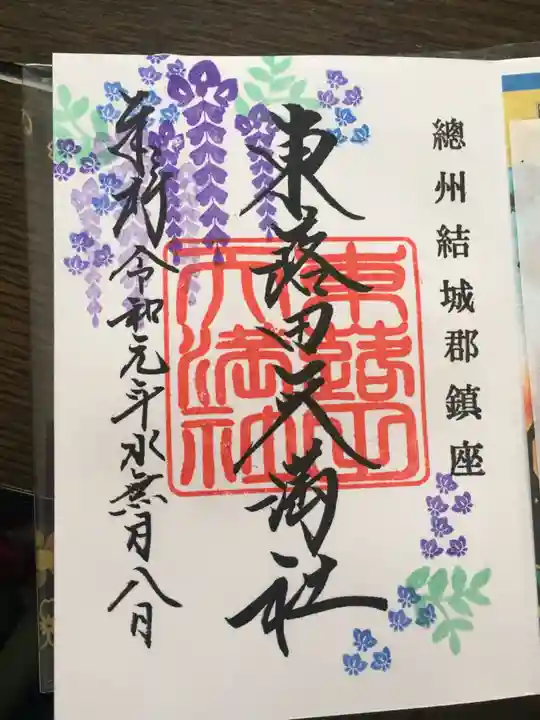 總州結城郡鎮座
東蕗田天満社
奉拝 令和元年水無月八日
東蕗田
天満社